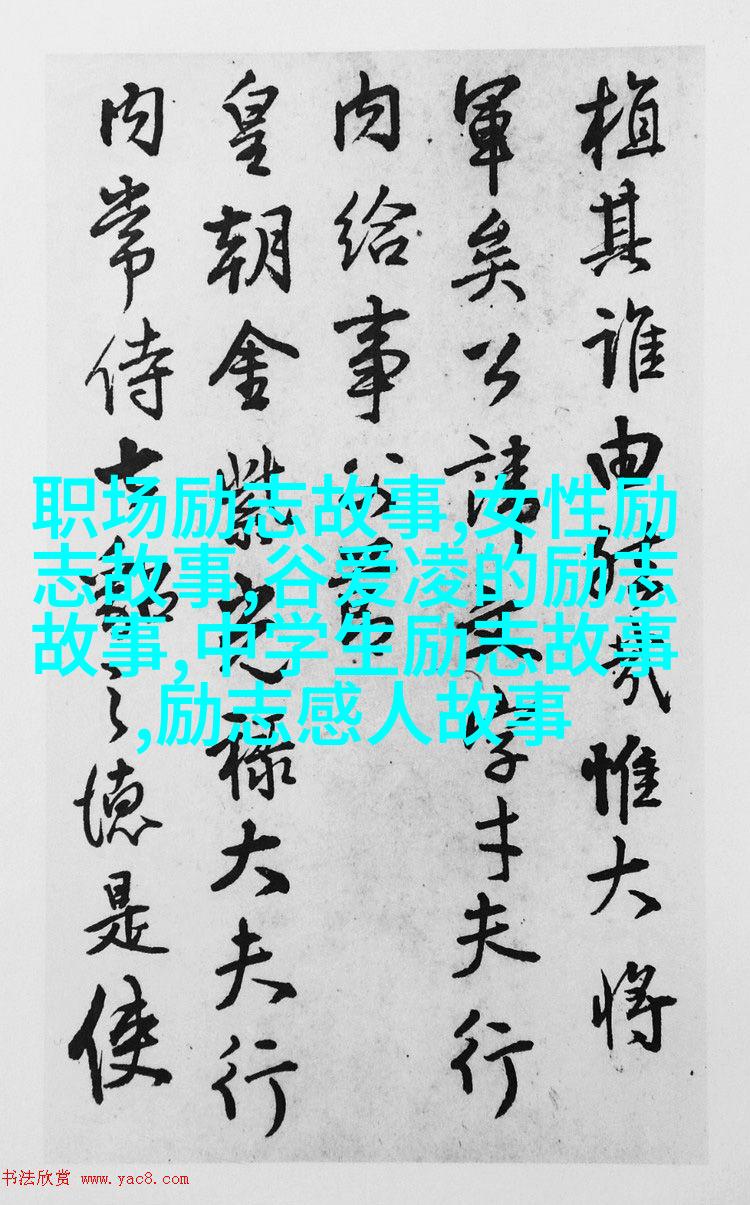 植其誰由惟大将
軍矣公諱文字才夫行
内給事
皇朝金紫光禄大夫行
内常侍之德是使
职场励志故事,女性励
志故事,谷爱凌的励志
故事,中学生励志故事
,励志感人故事
书法欣赏 www.yac8.com